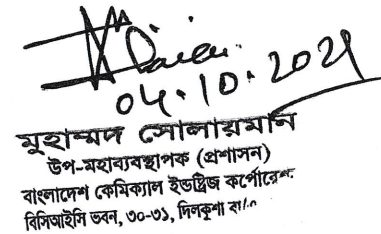 04.10.2021
মুহাম্মদ সোলায়মান
উপ-মহাব্যবস্থাপক (প্রশাসন)
বাংলাদেশ কেমিক্যাল ইন্ডাষ্ট্রিজ কর্পোরেশন
বিসিআইসি ভবন, ৩০-৩১, দিলকুশা বা/এ